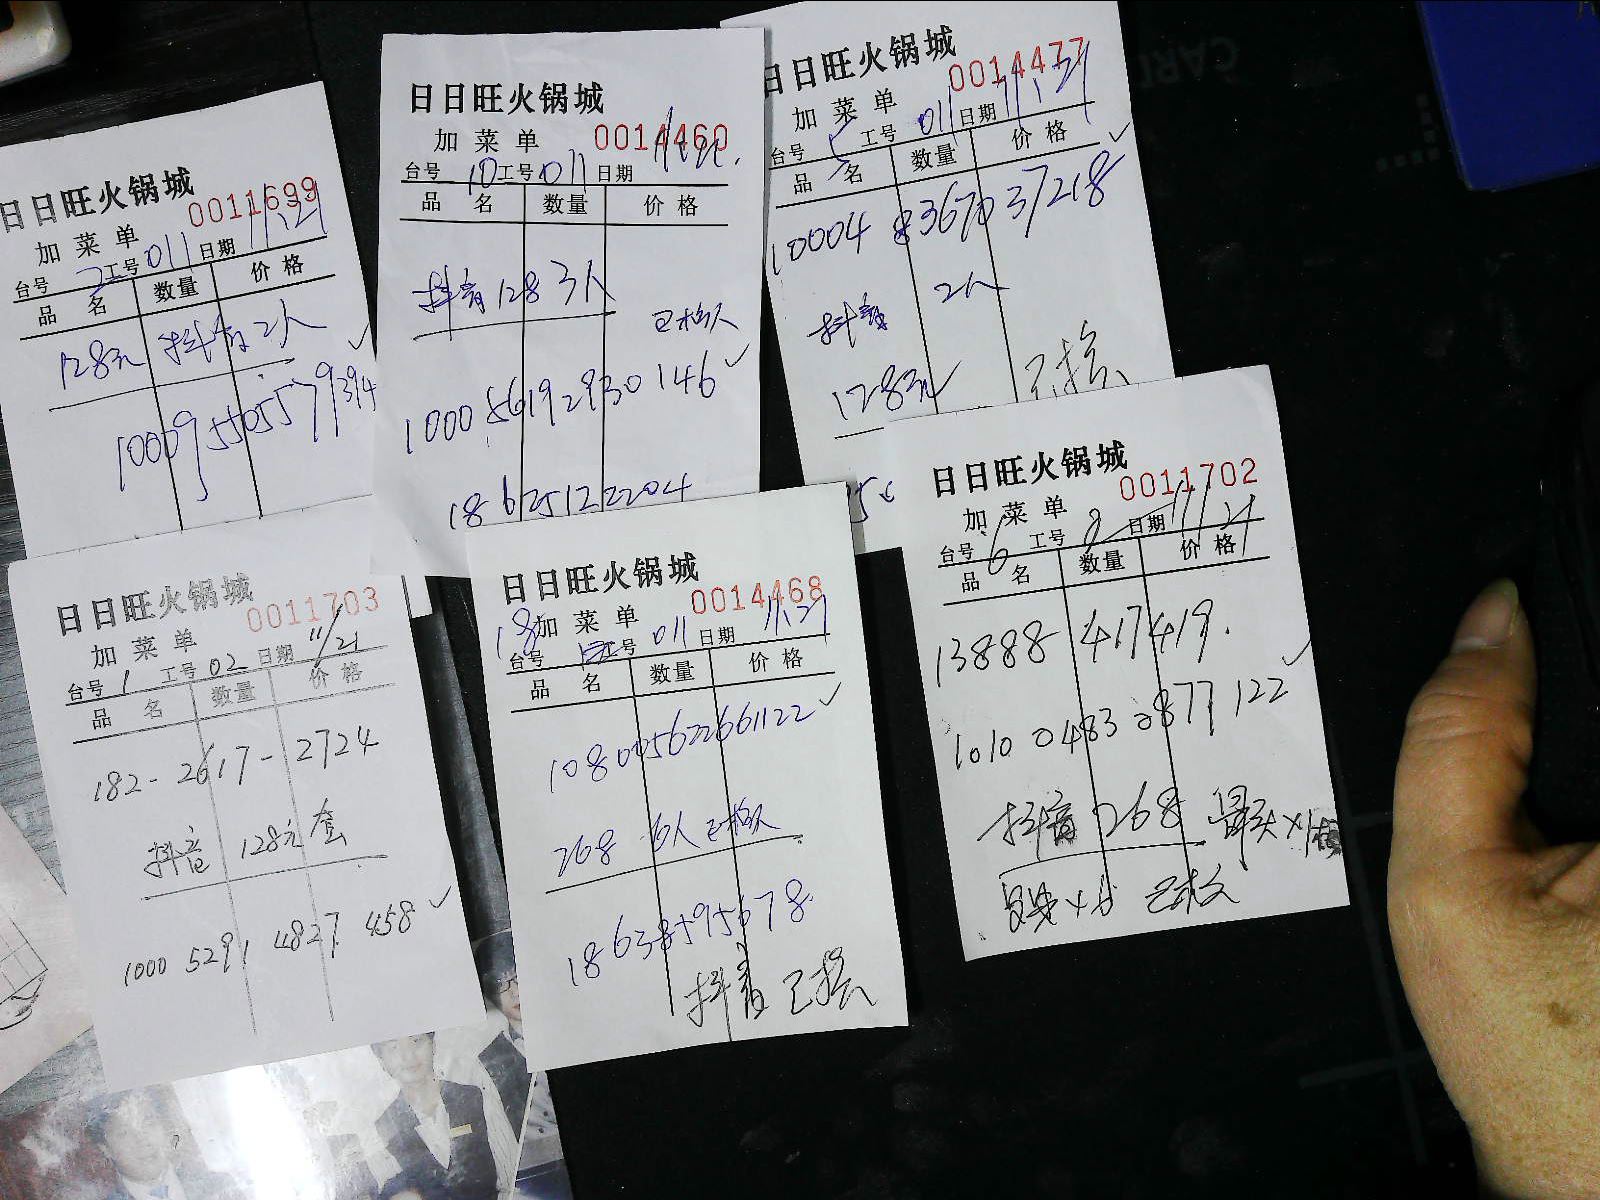 日日旺火锅城
0011699
加菜单
台号 2 工号 011 日期 11.21
品名 数量 价格
128元 抖音2人
1000955055579394
日日旺火锅城
加菜单 0014460
台号 10 工号 011 日期
品名 数量 价格
抖音128 3人
已核
1000 56192930 146
18625122204
日日旺火锅城
0014477
加菜单
台号 5 工号 011 日期 11.21
品名 数量 价格
10004 83670 37218
抖音 2人
128元
已核
日日旺火锅城
0011703
加菜单
台号 1 工号 02 日期 11/21
品名 数量 价格
182-2617-2724
抖音 128元套
1000 5291 4827 458
日日旺火锅城
0014468
18 加菜单
台号 工号 011 日期 11.21
品名 数量 价格
1080056226 61122
268 6人 已核
18638595678
抖音 已核
日日旺火锅城
0011702
加菜单
台号 6 工号 8 日期 11/21
品名 数量 价格
13888 417419.
1010 0483 0877 122
抖音 268
已核